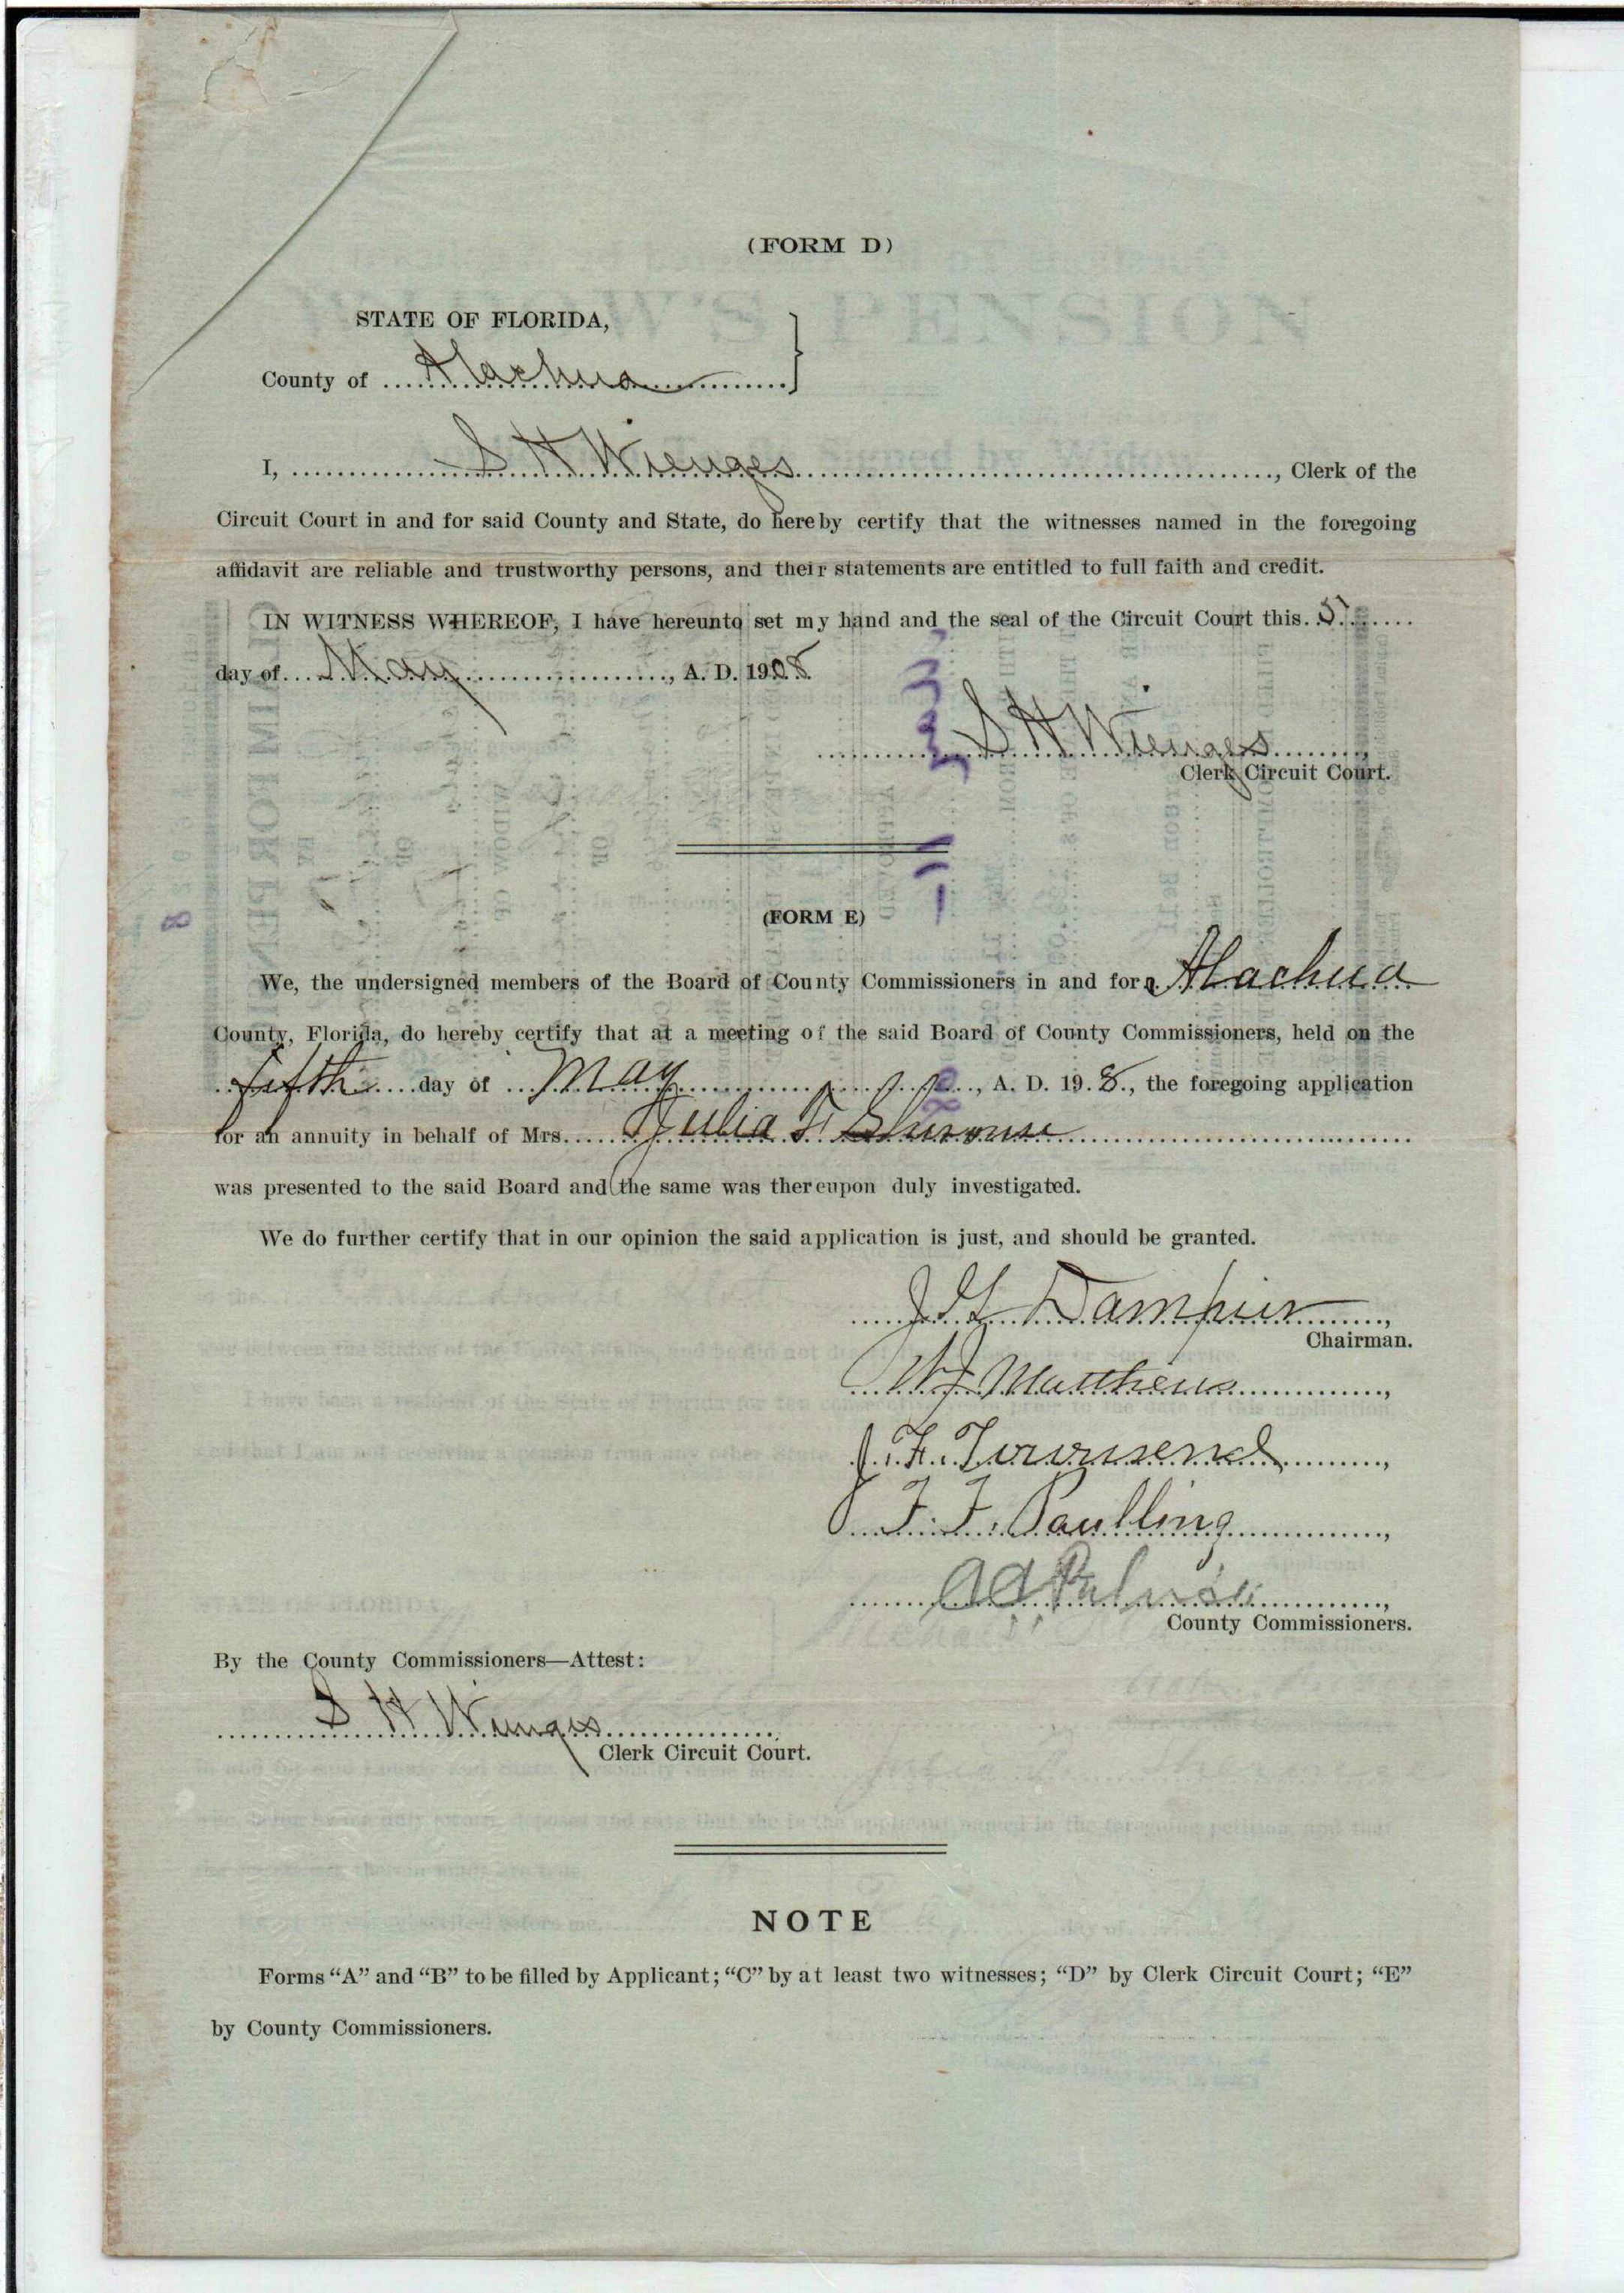 (FORM D)
STATE OF FLORIDA,
County of Alachua
I, S H Wienges, Clerk of the
Circuit Court in and for said County and State, do hereby certify that the witnesses named in the foregoing
affidavit are reliable and trustworthy persons, and their statements are entitled to full faith and credit.
IN WITNESS WHEREOF, I have hereunto set my hand and the seal of the Circuit Court this 5
day of May, A. D. 1908
S H Wienges
Clerk Circuit Court.
(FORM E)
We, the undersigned members of the Board of County Commissioners in and for Alachua
County, Florida, do hereby certify that at a meeting of the said Board of County Commissioners, held on the
fifth day of May, A. D. 19 8, the foregoing application
for an annuity in behalf of Mrs. Julia F
was presented to the said Board and the same was thereupon duly investigated.
We do further certify that in our opinion the said application is just, and should be granted.
Dampier,
Chairman.
W J Matthews,
J. F. Townsend,
F. F. Paulling,
County Commissioners.
By the County Commissioners—Attest:
S H Wienges
Clerk Circuit Court.
NOTE
Forms "A" and "B" to be filled by Applicant; "C" by at least two witnesses; "D" by Clerk Circuit Court; "E"
by County Commissioners.